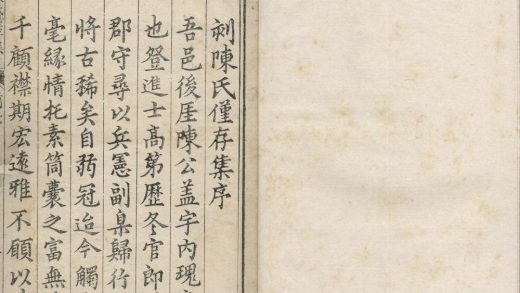 剡陳氏僅存集序
吾邑後厓陳公盖宇内瑰
也登進士高第歴冬官郎
郡守尋以兵憲副臬歸行
將古稀矣自弱冠迨今觸
毫縁情托素筒囊之富無
千顧襟期宏遠雅不願以